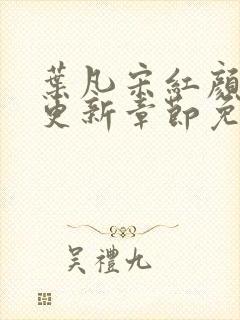 葉凡宋紅顏
更新章節免
吳禮九